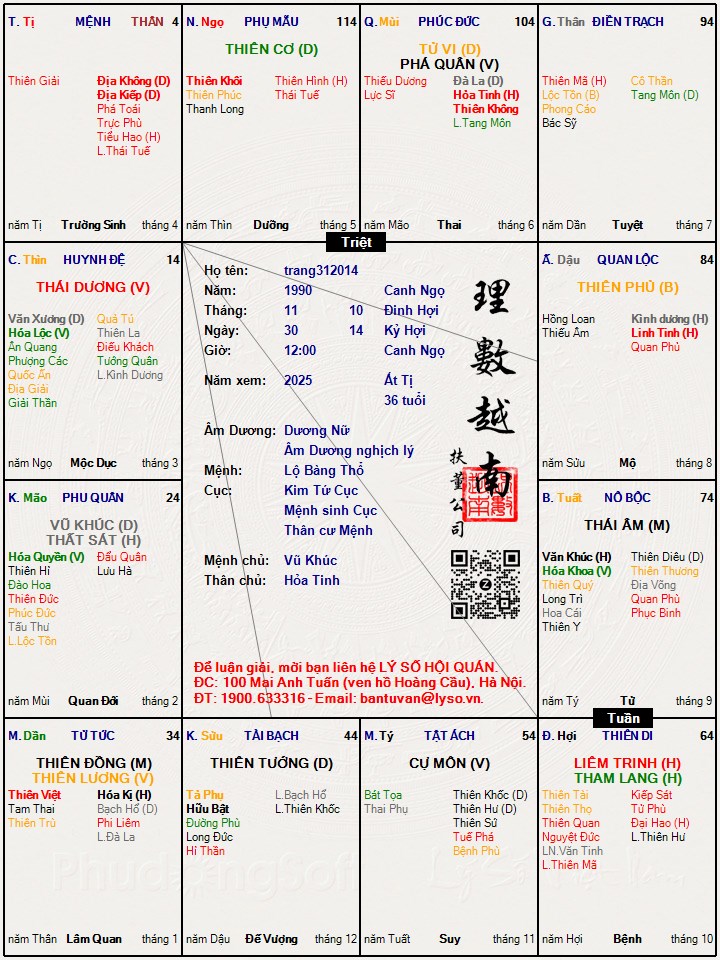 T. Tị MỆNH THÂN 4
Thiên Giải
Địa Không (D)
Địa Kiếp (D)
Phá Toái
Trực Phù
Tiểu Hao (H)
L.Thái Tuế
năm Tị Trường Sinh tháng 4
N. Ngọ PHỤ MẪU 114
THIÊN CƠ (D)
Thiên Khôi
Thiên Phúc
Thanh Long
Thiên Hình (H)
Thái Tuế
năm Thìn Dưỡng tháng 5
Q. Mùi PHÚC ĐỨC 104
TỬ VI (D)
PHÁ QUÂN (V)
Thiếu Dương
Lực Sĩ
Đà La (D)
Hỏa Tinh (H)
Thiên Không
L.Tang Môn
năm Mão Thai tháng 6
G. Thân ĐIỀN TRẠCH 94
Thiên Mã (H)
Lộc Tồn (B)
Phong Cáo
Bác Sỹ
Cô Thần
Tang Môn (D)
năm Dần Tuyệt tháng 7
C. Thìn HUYNH ĐỆ 14
THÁI DƯƠNG (V)
Văn Xương (D)
Hóa Lộc (V)
Ân Quang
Phượng Các
Quốc Ấn
Địa Giải
Giải Thần
Quả Tú
Thiên La
Điếu Khách
Tướng Quân
L.Kình Dương
năm Ngọ Mộc Dục tháng 3
Triệt
Họ tên: trang312014
Năm: 1990 Canh Ngọ
Tháng: 11 10 Đinh Hợi
Ngày: 30 14 Kỷ Hợi
Giờ: 12:00 Canh Ngọ
Năm xem: 2025 Ất Tị
36 tuổi
Âm Dương: Dương Nữ
Âm Dương nghịch lý
Mệnh: Lộ Bàng Thổ
Cục: Kim Tứ Cục
Mệnh sinh Cục
Thân cư Mệnh
Mệnh chủ: Vũ Khúc
Thân chủ: Hỏa Tinh
理數越南
扶董公司
Để luận giải, mời bạn liên hệ LÝ SỐ HỘI QUÁN.
ĐC: 100 Mai Anh Tuấn (ven hồ Hoàng Cầu), Hà Nội.
ĐT: 1900.633316 - Email: bantuvan@lyso.vn.
Ấ. Dậu QUAN LỘC 84
THIÊN PHỦ (B)
Hồng Loan
Thiếu Âm
Kình dương (H)
Linh Tinh (H)
Quan Phủ
năm Sửu Mộ tháng 8
K. Mão PHU QUÂN 24
VŨ KHÚC (D)
THẤT SÁT (H)
Hóa Quyền (V)
Thiên Hỉ
Đào Hoa
Thiên Đức
Phúc Đức
Tấu Thư
L.Lộc Tồn
Đẩu Quân
Lưu Hà
năm Mùi Quan Đới tháng 2
B. Tuất NÔ BỘC 74
THÁI ÂM (M)
Văn Khúc (H)
Hóa Khoa (V)
Thiên Quý
Long Trì
Hoa Cái
Thiên Y
Thiên Diêu (D)
Thiên Thương
Địa Võng
Quan Phù
Phục Binh
năm Tý Tử tháng 9
Tuần
M. Dần TỬ TỨC 34
THIÊN ĐỒNG (M)
THIÊN LƯƠNG (V)
Thiên Việt
Tam Thai
Thiên Trù
Hóa Kị (H)
Bạch Hổ (D)
Phi Liêm
L.Đà La
năm Thân Lâm Quan tháng 1
K. Sửu TÀI BẠCH 44
THIÊN TƯỚNG (D)
Tả Phụ
Hữu Bật
Đường Phù
Long Đức
Hỉ Thần
L.Bạch Hổ
L.Thiên Khốc
năm Dậu Đế Vượng tháng 12
M. Tý TẬT ÁCH 54
CỰ MÔN (V)
Bát Tọa
Thai Phụ
Thiên Khốc (D)
Thiên Hư (D)
Thiên Sứ
Tuế Phá
Bệnh Phù
năm Tuất Suy tháng 11
Đ. Hợi THIÊN DI 64
LIÊM TRINH (H)
THAM LANG (H)
Thiên Tài
Thiên Thọ
Thiên Quan
Nguyệt Đức
LN.Văn Tinh
L.Thiên Mã
Kiếp Sát
Tử Phù
Đại Hao (H)
L.Thiên Hư
năm Hợi Bệnh tháng 10